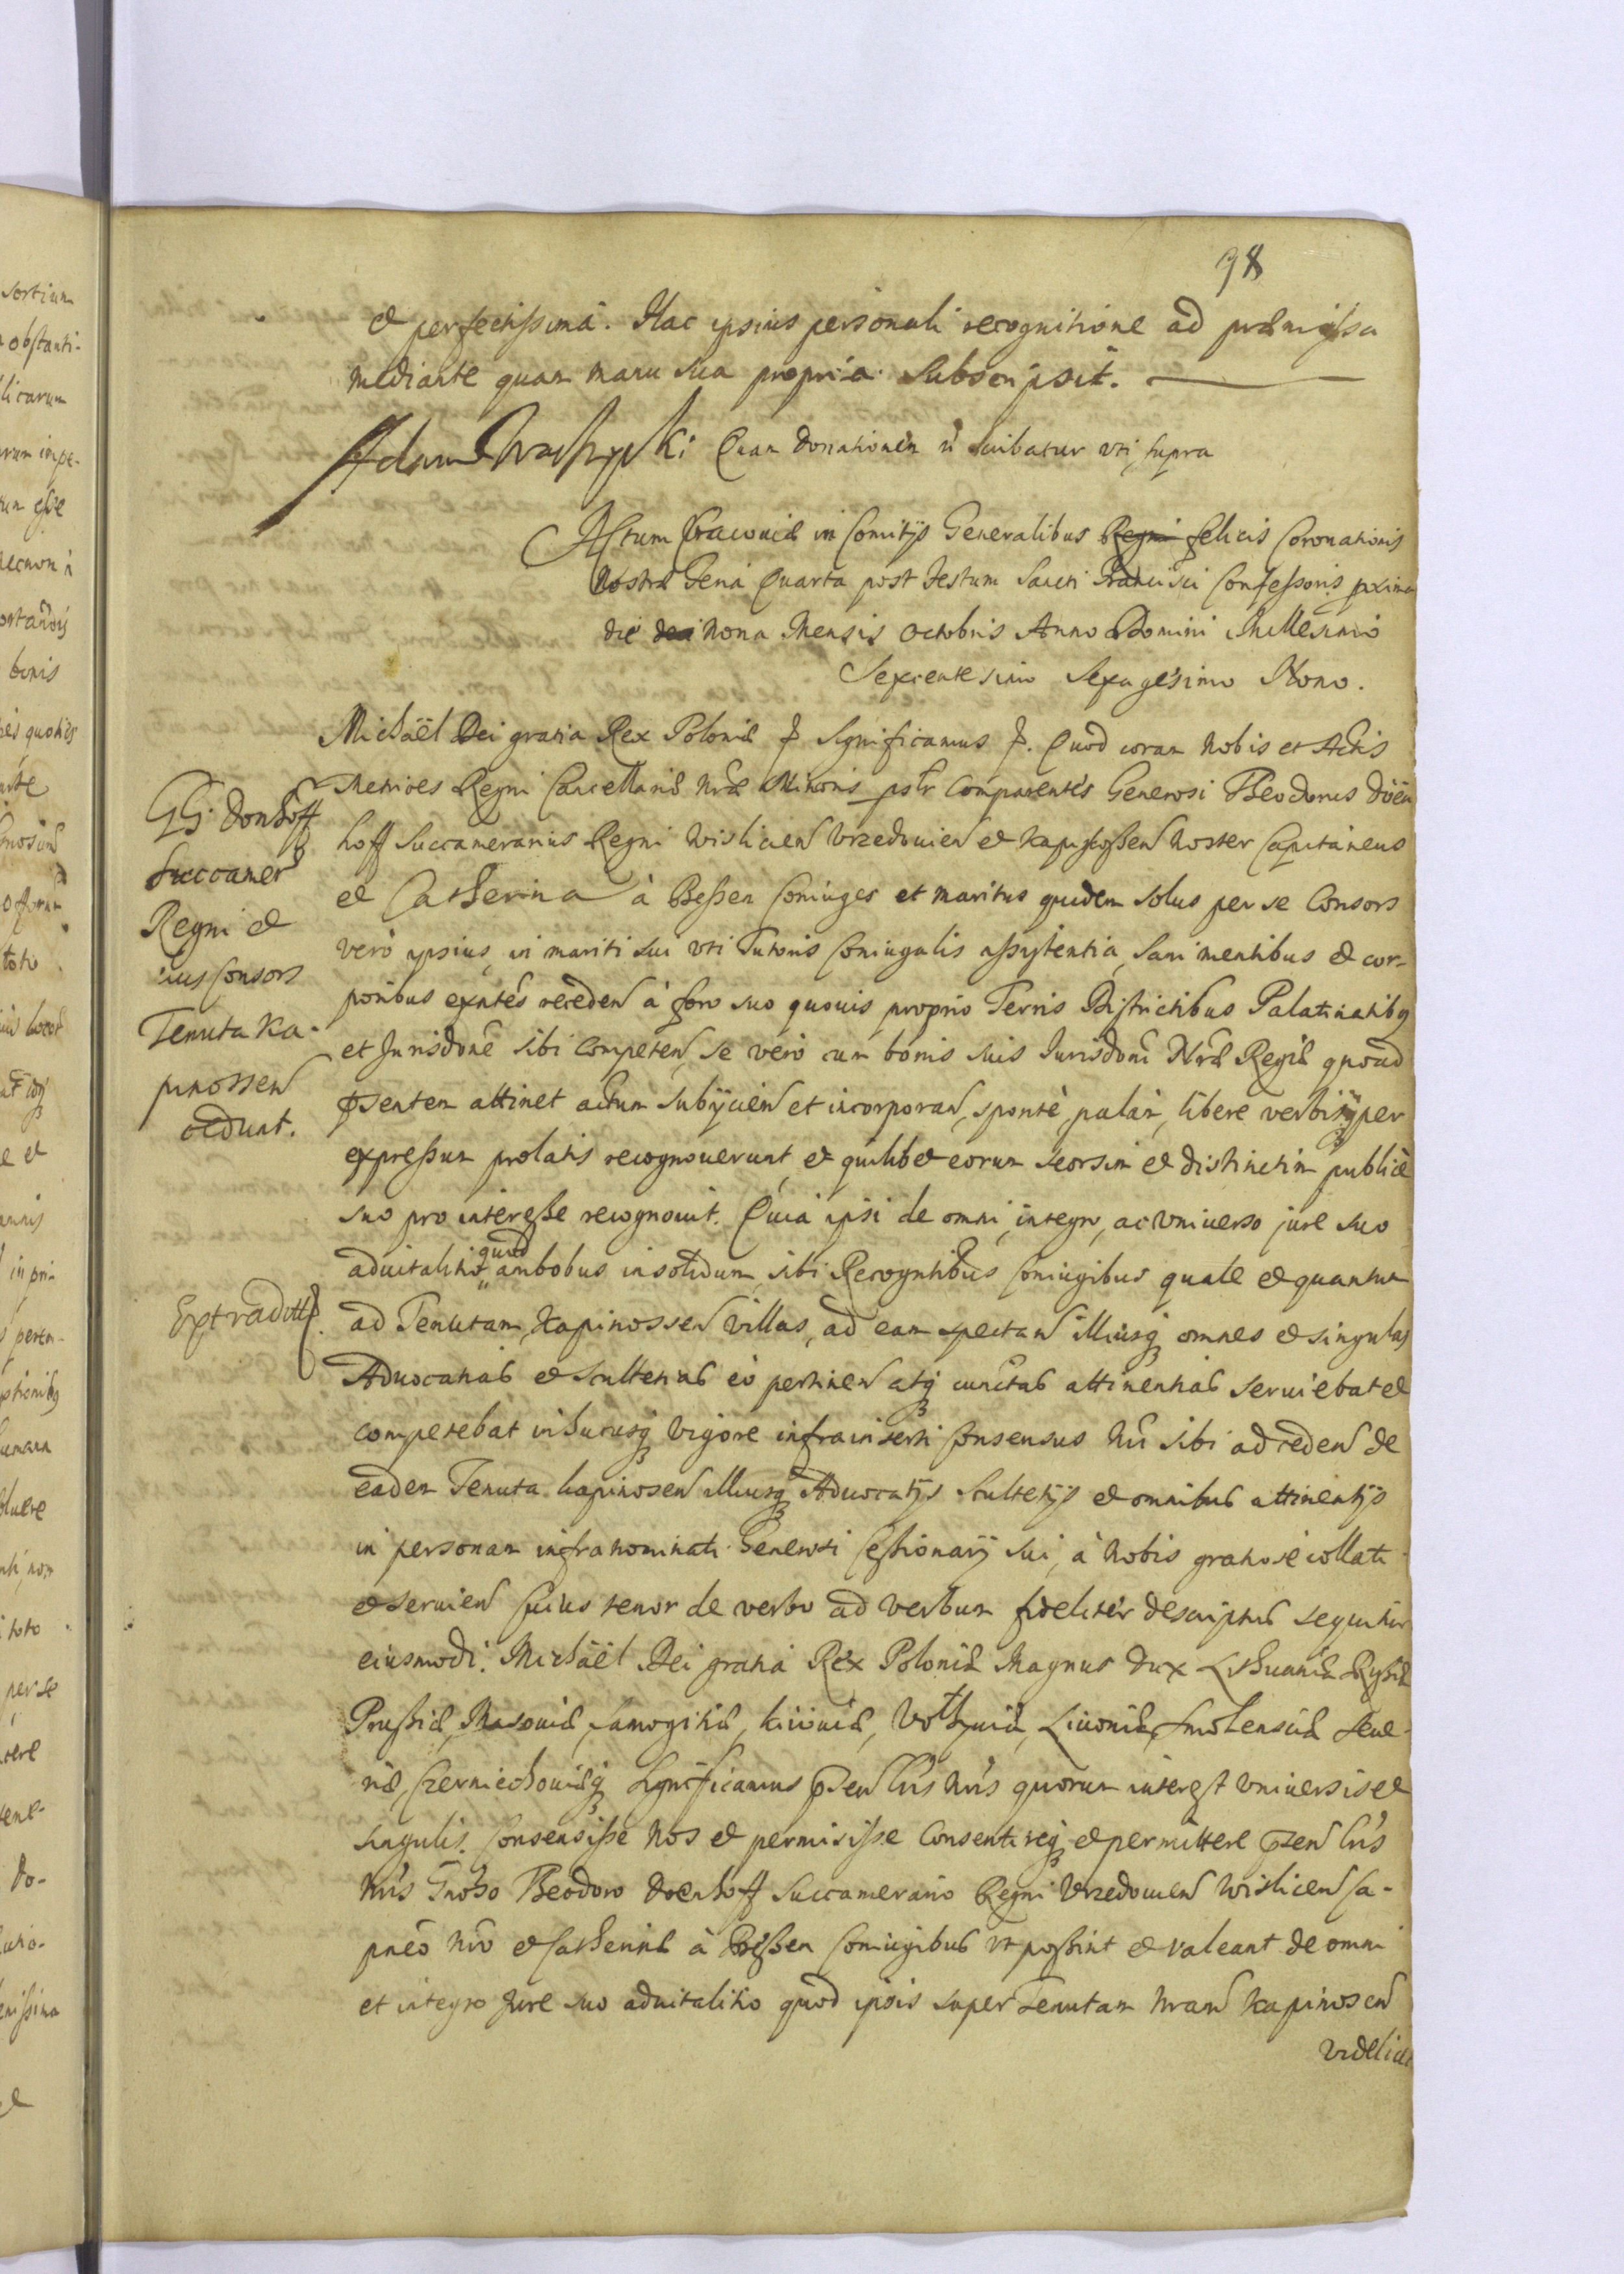 98
et perfectissima. Hac ipsius personali recognitione ad præmissa
mediante quam manu sua propria subscripsit.
Adam Quam donationem
scribatur uti supra
Actum Cracoviæ in Comitijs Generalibus Regni felicis Coronationis
Nostræ Feria Quarta post Festum Sancti Francisci Confessoris pxima
die nona Mensis Octobris Anno Domini Millesimo
Sexcentesimo Sexagesimo Nono.
Michäel Dei gratia Rex Poloniæ Significamus Quod coram Nobis et Actis
GG: Donhoff
Succamer
Regni et
ius Consors
Tenuta Ka-
pinossen
cedunt.
Metrices Regni Cancellariæ Nræ Minoris pstr Comparentes Generosi Theodorus Döen
hoff Succamerarius Regni Wislicien Vrzedouien et Kapinossen Noster Capitaneus
et Catherina à Bessen Coniuges et maritus quidem solus per se Consors
vero ipsius in mariti sui uti Tutoris Coniugalis assystentia, sani mentibus et cor-
poribus exntes receden à foro suo quovis proprio Terris Districtibus Palatinatibq
et Jurisdone sibi competen, se vero cum bonis suis Jurisdoni Nræ Regiæ quoad
psentem attinet actum subijcien et incorporan, sponte, palam, libere verbisq per
expressum prolatis recognoverunt, et quilibet eorum seorsim et distinctim publicè
suo pro interesse recognovit. Quia ipsi de omni, integro, ac universo jure suo
advitalitio quod ambobus insolidum sibi Recogntibus Coniugibus quale et quantum
Extradittæ.
ad Tenutam Kapinossen villas, ad eam spectan illiusq omnes et singulas
Advocatias et Scultetias eò pertinen atq cunctas attinentias serviebat et
competebat inhucusq vigore infrainserti Consensus Nri sibi ad ceden de
eadem Tenuta Kapinosen illiusq Advocatijs Scultetijs et omnibus attinentijs
in personam infranominati Generosi Cessionarij sui, à Nobis gratiose collati
et servien Cuius tenor de verbo ad verbum fideliter descriptus sequitur
eiusmodi. Michäel Dei gratia Rex Poloniæ Magnus Dux Lithuaniæ Russiæ
Prussiæ, Masoviæ, Samogitiæ, Kiioviæ, Volhyniæ, Livoniæ, Smolensciæ Seve-
riæ, Czerniechoviæq Significamus psen Lris Nris quorum interest Universis et
singulis. Consensisse Nos et permisisse Consentireq et permittere psen Lris
Nris Gnoso Theodoro Doenhoff Succamerario Regni Vrzedouien Wislicen Ca-
pneo Nro et Catherinæ à Bessen Coniugibus ut possint et valeant de omni
et integro Jure suo advitalitio quod ipsis super Tenutam Nram Kapinosen
videlicet